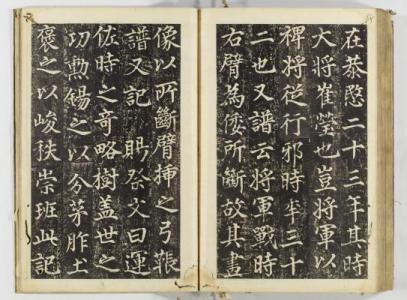 在恭愍二十三年其時
大將崔瑩也豈將軍以
裨將從行邪時年三十
二也又譜云將軍戰時
右臂為倭所斷故其畫
像以所斷臂揷之弓韔
譜又記賜祭文曰運
佐時之奇略樹盖世之
功勳錫之以分茅胙土
襃之以峻秩崇班此記